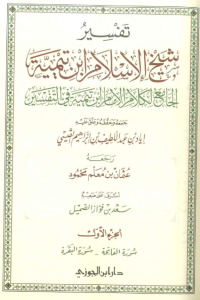 تفسير
شيخ الإسلام ابن تيمية
الجامع لكلام الإمام ابن تيمية في التفسير
جمعه وحققه وعلق عليه
إياد بن عبد اللطيف بن إبراهيم القيسي
راجعه
عثمان بن معلم محمود
أشرف على طبعه
سعد بن فواز الصميل
الجزء الأول
سورة الفاتحة - سورة البقرة
دار ابن الجوزي